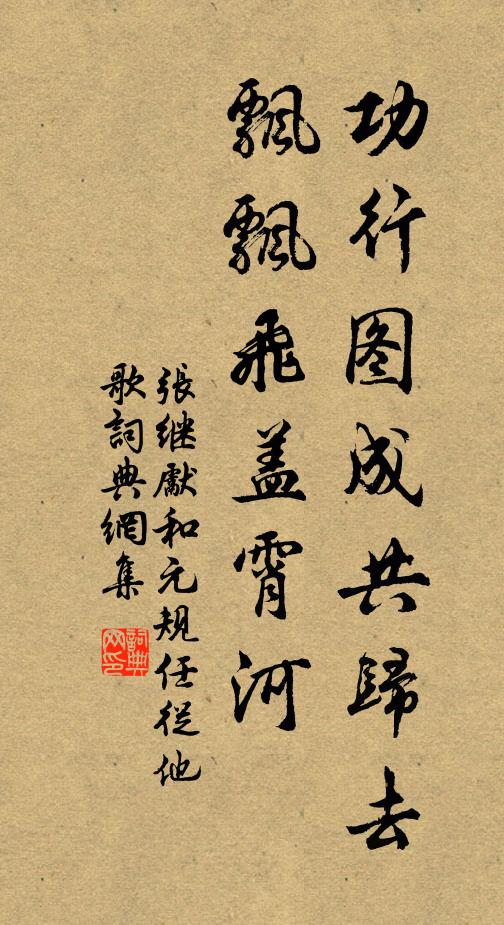 功行图成共歸去
飄飄飛盖霄河
張继獻和元規任從他
歌詞典網集
詞典网印